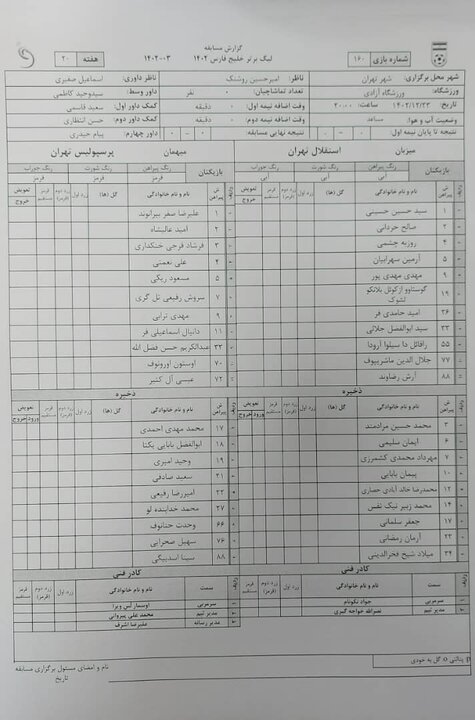 گزارش مسابقه
شماره بازی ۱۶۰
لیگ برتر خلیج فارس ۱۴۰۲
۱۴۰۲-۰۳
هفته ۲۰
شهر محل برگزاری: شهر تهران
ناظر: امیرحسین روشنک
ناظر داوری: اسماعیل صفیری
ورزشگاه: ورزشگاه آزادی
تعداد تماشاچیان: ۰ نفر
داور وسط: سیدوحید کاظمی
تاریخ: ۱۴۰۲/۱۲/۲۳ ساعت: ۲۰:۰۰
وقت اضافه نیمه اول: ۰ دقیقه
کمک داور اول: سعید قاسمی
وضعیت آب و هوا: مساعد
وقت اضافه نیمه دوم: ۰ دقیقه
کمک داور دوم: حسن انتظاری
نتیجه تا پایان نیمه اول: ۰ - ۰
نتیجه نهایی مسابقه: ۰ - ۰
داور چهارم: پیام حیدری
میزبان استقلال تهران
میهمان پرسپولیس تهران
بازیکنان
رنگ پیراهن آبی
رنگ شورت آبی
رنگ جوراب آبی
بازیکنان
رنگ پیراهن قرمز
رنگ شورت قرمز
رنگ جوراب قرمز
ردیف ش پیراهن نام و نام خانوادگی گل (ها) زرد اول زرد دوم (قرمز) قرمز مستقیم تعویض خروج
۱ سید حسین حسینی
۲ صالح حردانی
۴ روزبه چشمی
۵ آرمین سهرابیان
۹ مهدی مهدی پور
۱۹ گوستاوو ازکوئل بلانکو لشوک
۲۶ امید حامدی فر
۲۳ سید ابوالفضل جلالی
۵۵ رافائل دا سیلوا آرودا
۷۷ جلال الدین ماشریپوف
۸۸ آرش رضاوند
ردیف ش پیراهن نام و نام خانوادگی گل (ها) زرد اول زرد دوم (قرمز) قرمز مستقیم تعویض خروج
۱ علیرضا صفر بیرانوند
۲ امید عالیشاه
۳ فرشاد فرجی خنکداری
۴ علی نعمتی
۵ مسعود ریگی
۷ سروش رفیعی تل گری
۹ مهدی ترابی
۱۱ دانیال اسماعیلی فر
۳۳ عبدالکریم حسن فضل الله
۷۰ اوستون اورونوف
۷۲ عیسی آل کثیر
ذخیره
ردیف ش پیراهن نام و نام خانوادگی گل (ها) زرد اول زرد دوم (قرمز) قرمز مستقیم تعویض ورود خروج
۳ محمد حسین مرادمند
۶ ایمان سلیمی
۷ مهرداد محمدی کشمرزی
۱۰ پیمان بابایی
۱۲ محمدرضا خالد آبادی حصاری
۱۴ محمد زبیر نیک نفس
۱۷ جعفر سلمانی
۲۳ آرمان رمضانی
۳۴ میلاد شیخ فخرالدینی
ذخیره
ردیف ش پیراهن نام و نام خانوادگی گل (ها) زرد اول زرد دوم (قرمز) قرمز مستقیم تعویض ورود خروج
۱۷ محمد مهدی احمدی
۱۸ ابوالفضل بابایی یکتا
۱۹ وحید امیری
۲۱ سعید صادقی
۲۲ امیررضا رفیعی
۲۷ محمد خدابنده لو
۶۶ وحدت حنانوف
۷۶ سهیل صحرایی
۸۸ سینا اسدبیگی
کادر فنی
ردیف سمت نام و نام خانوادگی زرد اول زرد دوم (قرمز) قرمز مستقیم
۱ سرمربی جواد نکونام
۲ مدیر تیم نصرالله خواجه گیری
کادر فنی
ردیف سمت نام و نام خانوادگی زرد اول زرد دوم (قرمز) قرمز مستقیم
۱ سرمربی اوسمار لس ویرا
۲ مدیر تیم محمد علی پیروانی
۳ مدیر رسانه علیرضا اشرف
p پنالتی o گل به خودی
نام و امضای مسئول برگزاری مسابقه
تاریخ